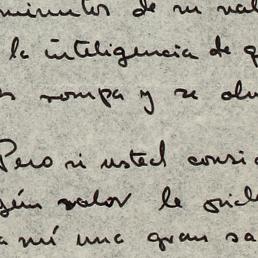 minutos de su val
la inteligencia de q
rompa y se olv
Pero si usted consid
gún valor le pide
a mí una gran sa